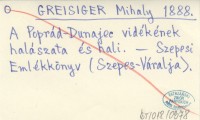 GREISIGER Mihály 1888.
A Poprád-Dunajec vidékének
halászata és hali. — Szepesi
Emlékkönyv (Szepes-Váralja).